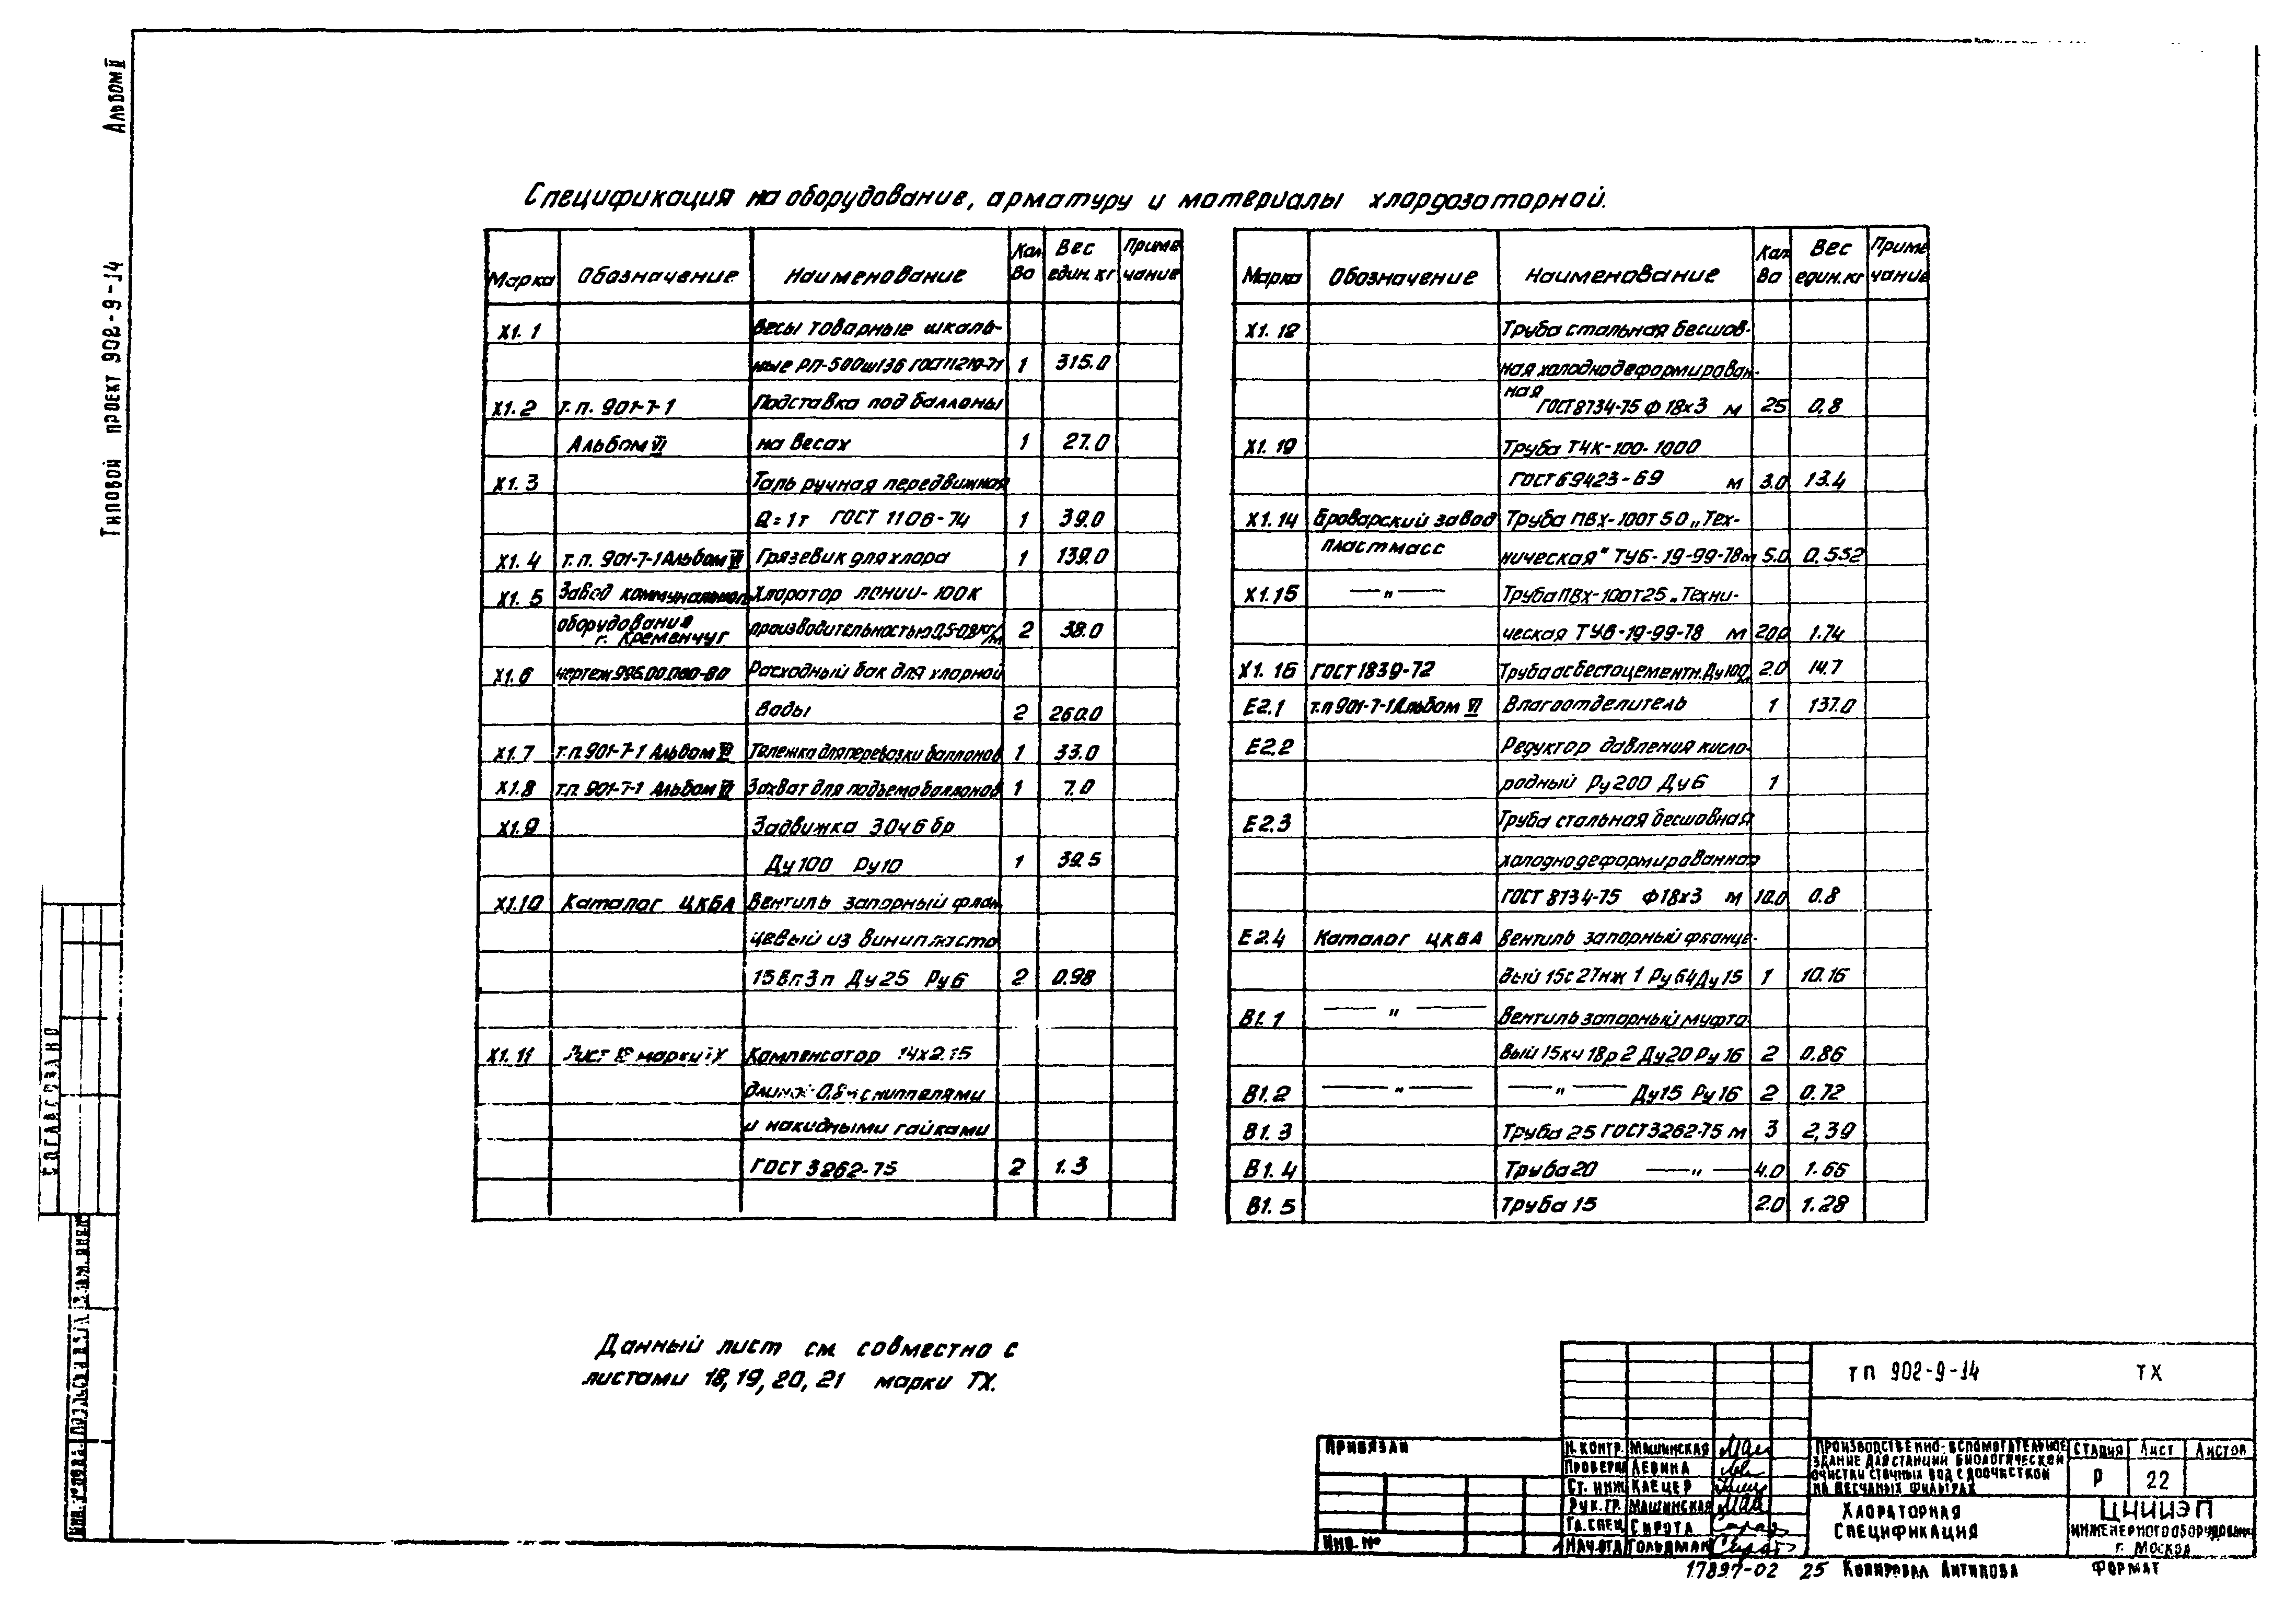 Альбом II
Типовой проект 902-9-14
Спецификация на оборудование, арматуру и материалы хлордозаторной.
Марка Обозначение Наименование Кол во Вес един. кг Приме чание
Х1.1 Весы товарные шкаль-
ные РП-500ш136 ГОСТ11219-71 1 315.0
Х1.2 т.п. 901-7-1 Подставка под баллоны
Альбом VI на весах 1 27.0
Х1.3 Таль ручная передвижная
Q=1т ГОСТ 1106-74 1 39.0
Х1.4 т.п. 901-7-1 Альбом VI Грязевик для хлора 1 139.0
Х1.5 Завод коммунального Хлоратор ЛОНИИ-100К
оборудования г. Кременчуг производительностью 0,5-0,8 кг/ 2 38.0
Х1.6 чертеж 995.00.000-В0 Расходный бак для хлорной
воды 2 260.0
Х1.7 т.п. 901-7-1 Альбом VI Тележка для перевозки баллонов 1 33.0
Х1.8 т.п. 901-7-1 Альбом VI Захват для подъема баллонов 1 7.0
Х1.9 Задвижка 30ч6бр
Ду100 Ру10 1 39.5
Х1.10 Каталог ЦКБА Вентиль запорный флан
цевый из винипласта
15вп3п Ду25 Ру6 2 0.98
Х1.11 Лист марки ТХ Компенсатор 14х2.15
длиной 0.8м с ниппелями
и накидными гайками
ГОСТ 3262-75 2 1.3
Марка Обозначение Наименование Кол во Вес един. кг Приме чание
Х1.12 Труба стальная бесшов-
ная холоднодеформирован-
ная ГОСТ8734-75 Ф18х3 м 25 0,8
Х1.19 Труба ТЧК-100-1000
ГОСТ69423-69 м 3.0 13.4
Х1.14 Броварский завод Труба ПВХ-100т50 „Тех-
пластмасс ническая" ТУ6-19-99-78м 5.0 0.552
Х1.15 —„— Труба ПВХ-100т25 „Техни-
ческая ТУ6-19-99-78 м 20.0 1.74
Х1.16 ГОСТ1839-72 Труба асбестоцементн. Ду100 м 2.0 14.7
Е2.1 т.п 901-7-1 Альбом VI Влагоотделитель 1 137.0
Е2.2 Редуктор давления кисло-
родный Ру200 Ду6 1
Е2.3 Труба стальная бесшовная
холоднодеформированная
ГОСТ 8734-75 Ф18х3 м 10.0 0.8
Е2.4 Каталог ЦКБА Вентиль запорный фланце-
вый 15с27нж1 Ру64 Ду15 1 10.16
В1.1 —„— Вентиль запорный муфто
вый 15кч18р2 Ду20 Ру16 2 0.86
В1.2 —„— —„— Ду15 Ру16 2 0.72
В1.3 Труба 25 ГОСТ3262-75 м 3 2,39
В1.4 Труба 20 —„— 4.0 1.66
В1.5 Труба 15 2.0 1.28
Данный лист см. совместно с
листами 18,19,20,21 марки ТХ.
СОГЛАСОВАНО
ТП 902-9-14 ТХ
Привязан
Инв. №
Н.контр. Машинская
Проверил Левина
Ст. инж Клецер
Рук.гр. Машинская
Гл.спец Сирота
Нач.отд Гольдман
Производственно-вспомогательное
здание для станций биологической
очистки сточных вод с доочисткой
на песчаных фильтрах
Стадия Лист Листов
Р 22
Хлораторная
спецификация
ЦНИИЭП
инженерного оборудования
г. Москва
17897-02 25 Копировал Антипова Формат